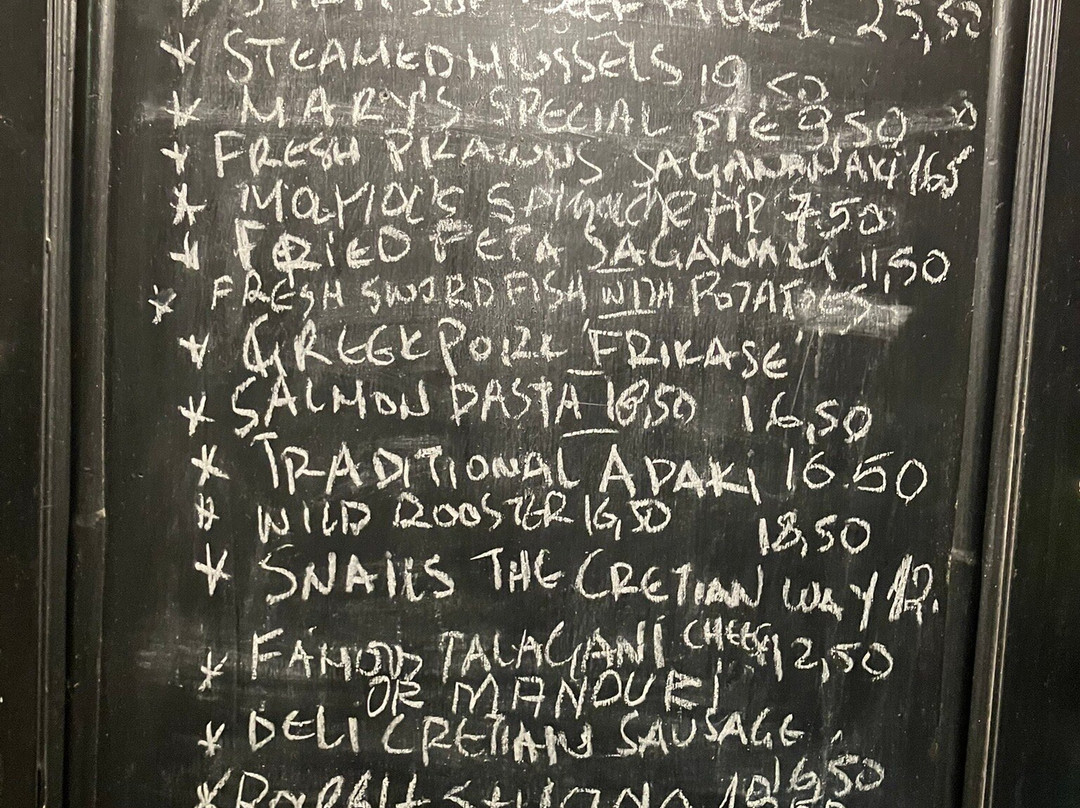 23,50
* STEAMED MUSSELS 19,50
* MARY'S SPECIAL PIE 9,50
* FRESH PRAWNS SAGANANAKI 16,5
* 7,50
* FRIED FETA SAGANAKI 11,50
* FRESH SWORDFISH WITH POTATOES
* GREEK PORK 'FRIKASE'
* SALMON PASTA 18,50 16,50
* TRADITIONAL APAKI 16.50
* WILD ROOSTER 16,50 18,50
* SNAILS THE CRETIAN WAY 12.
* FAMOUS TALAGANI CHEESE 12,50
OR MANOURI
* DELI CRETIAN SAUSAGE
16,50